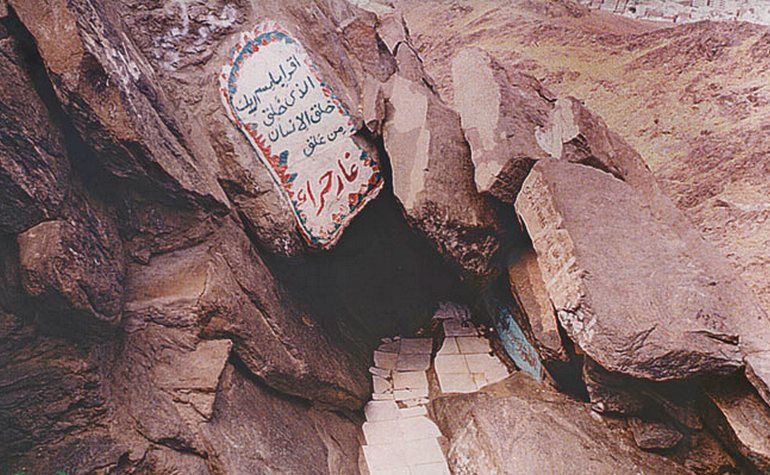 اقرأ باسم ربك
الذي خلق
خلق الانسان
من علق
غار حراء